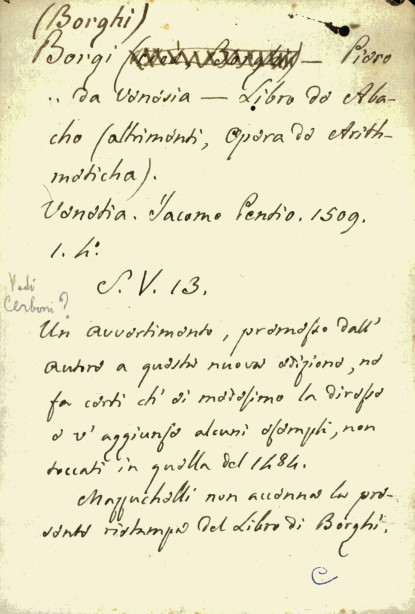 (Borghi)
Borgi — Piero
,, da Venesia — Libro de Aba-
cho (altrimenti, Opera de Arith-
meticha).
Venetia. Jacomo Pentio. 1509.
1. 4°.
S. V. 13.
Vedi
Cerboni?
Un avvertimento, premesso dall'
autore a questa nuova edizione, ne
fa certi ch' ei medesimo la diresse
e v' aggiunse alcuni esempli, non
toccati in quella del 1484.
Mazzuchelli non accenna la pre-
sente ristampa del Libro di Borghi.
C